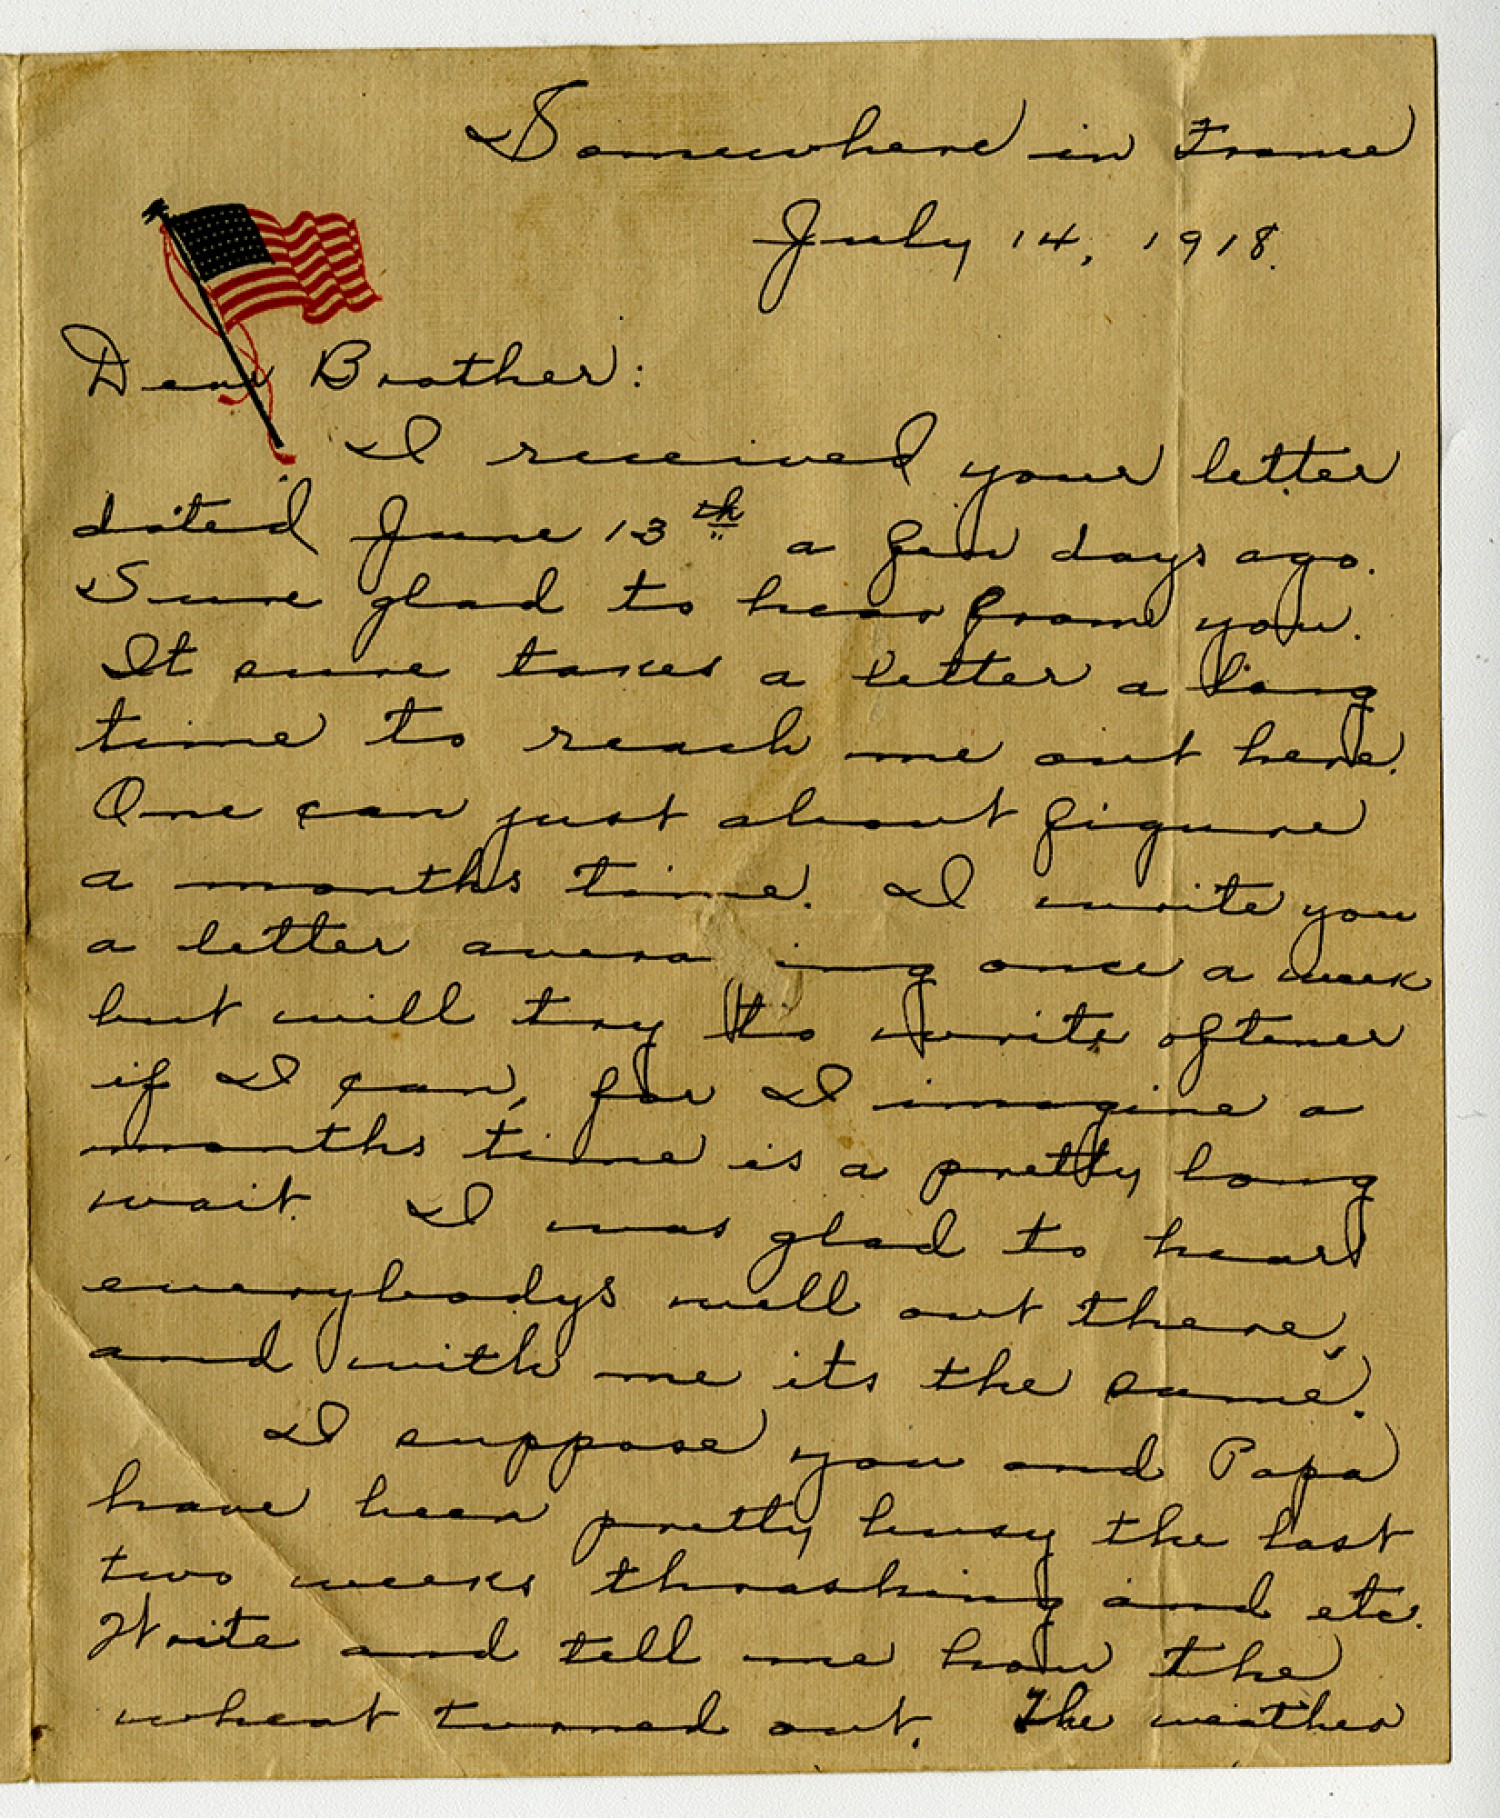 Somewhere in France
July 14, 1918.
Dear Brother:
I received your letter
dated June 13th a few days ago.
Sure glad to hear from you.
It sure takes a letter a long
time to reach me out here.
One can just about figure
a months time. I write you
a letter avera ing once a week
but will try to write oftener
if I can, for I imagine a
months time is a pretty long
wait. I was glad to hear
everybodys well out there,
and with me its the same.
I suppose you and Papa
have been pretty busy the last
two weeks thrashing and etc.
Write and tell me how the
wheat turned out. The weather